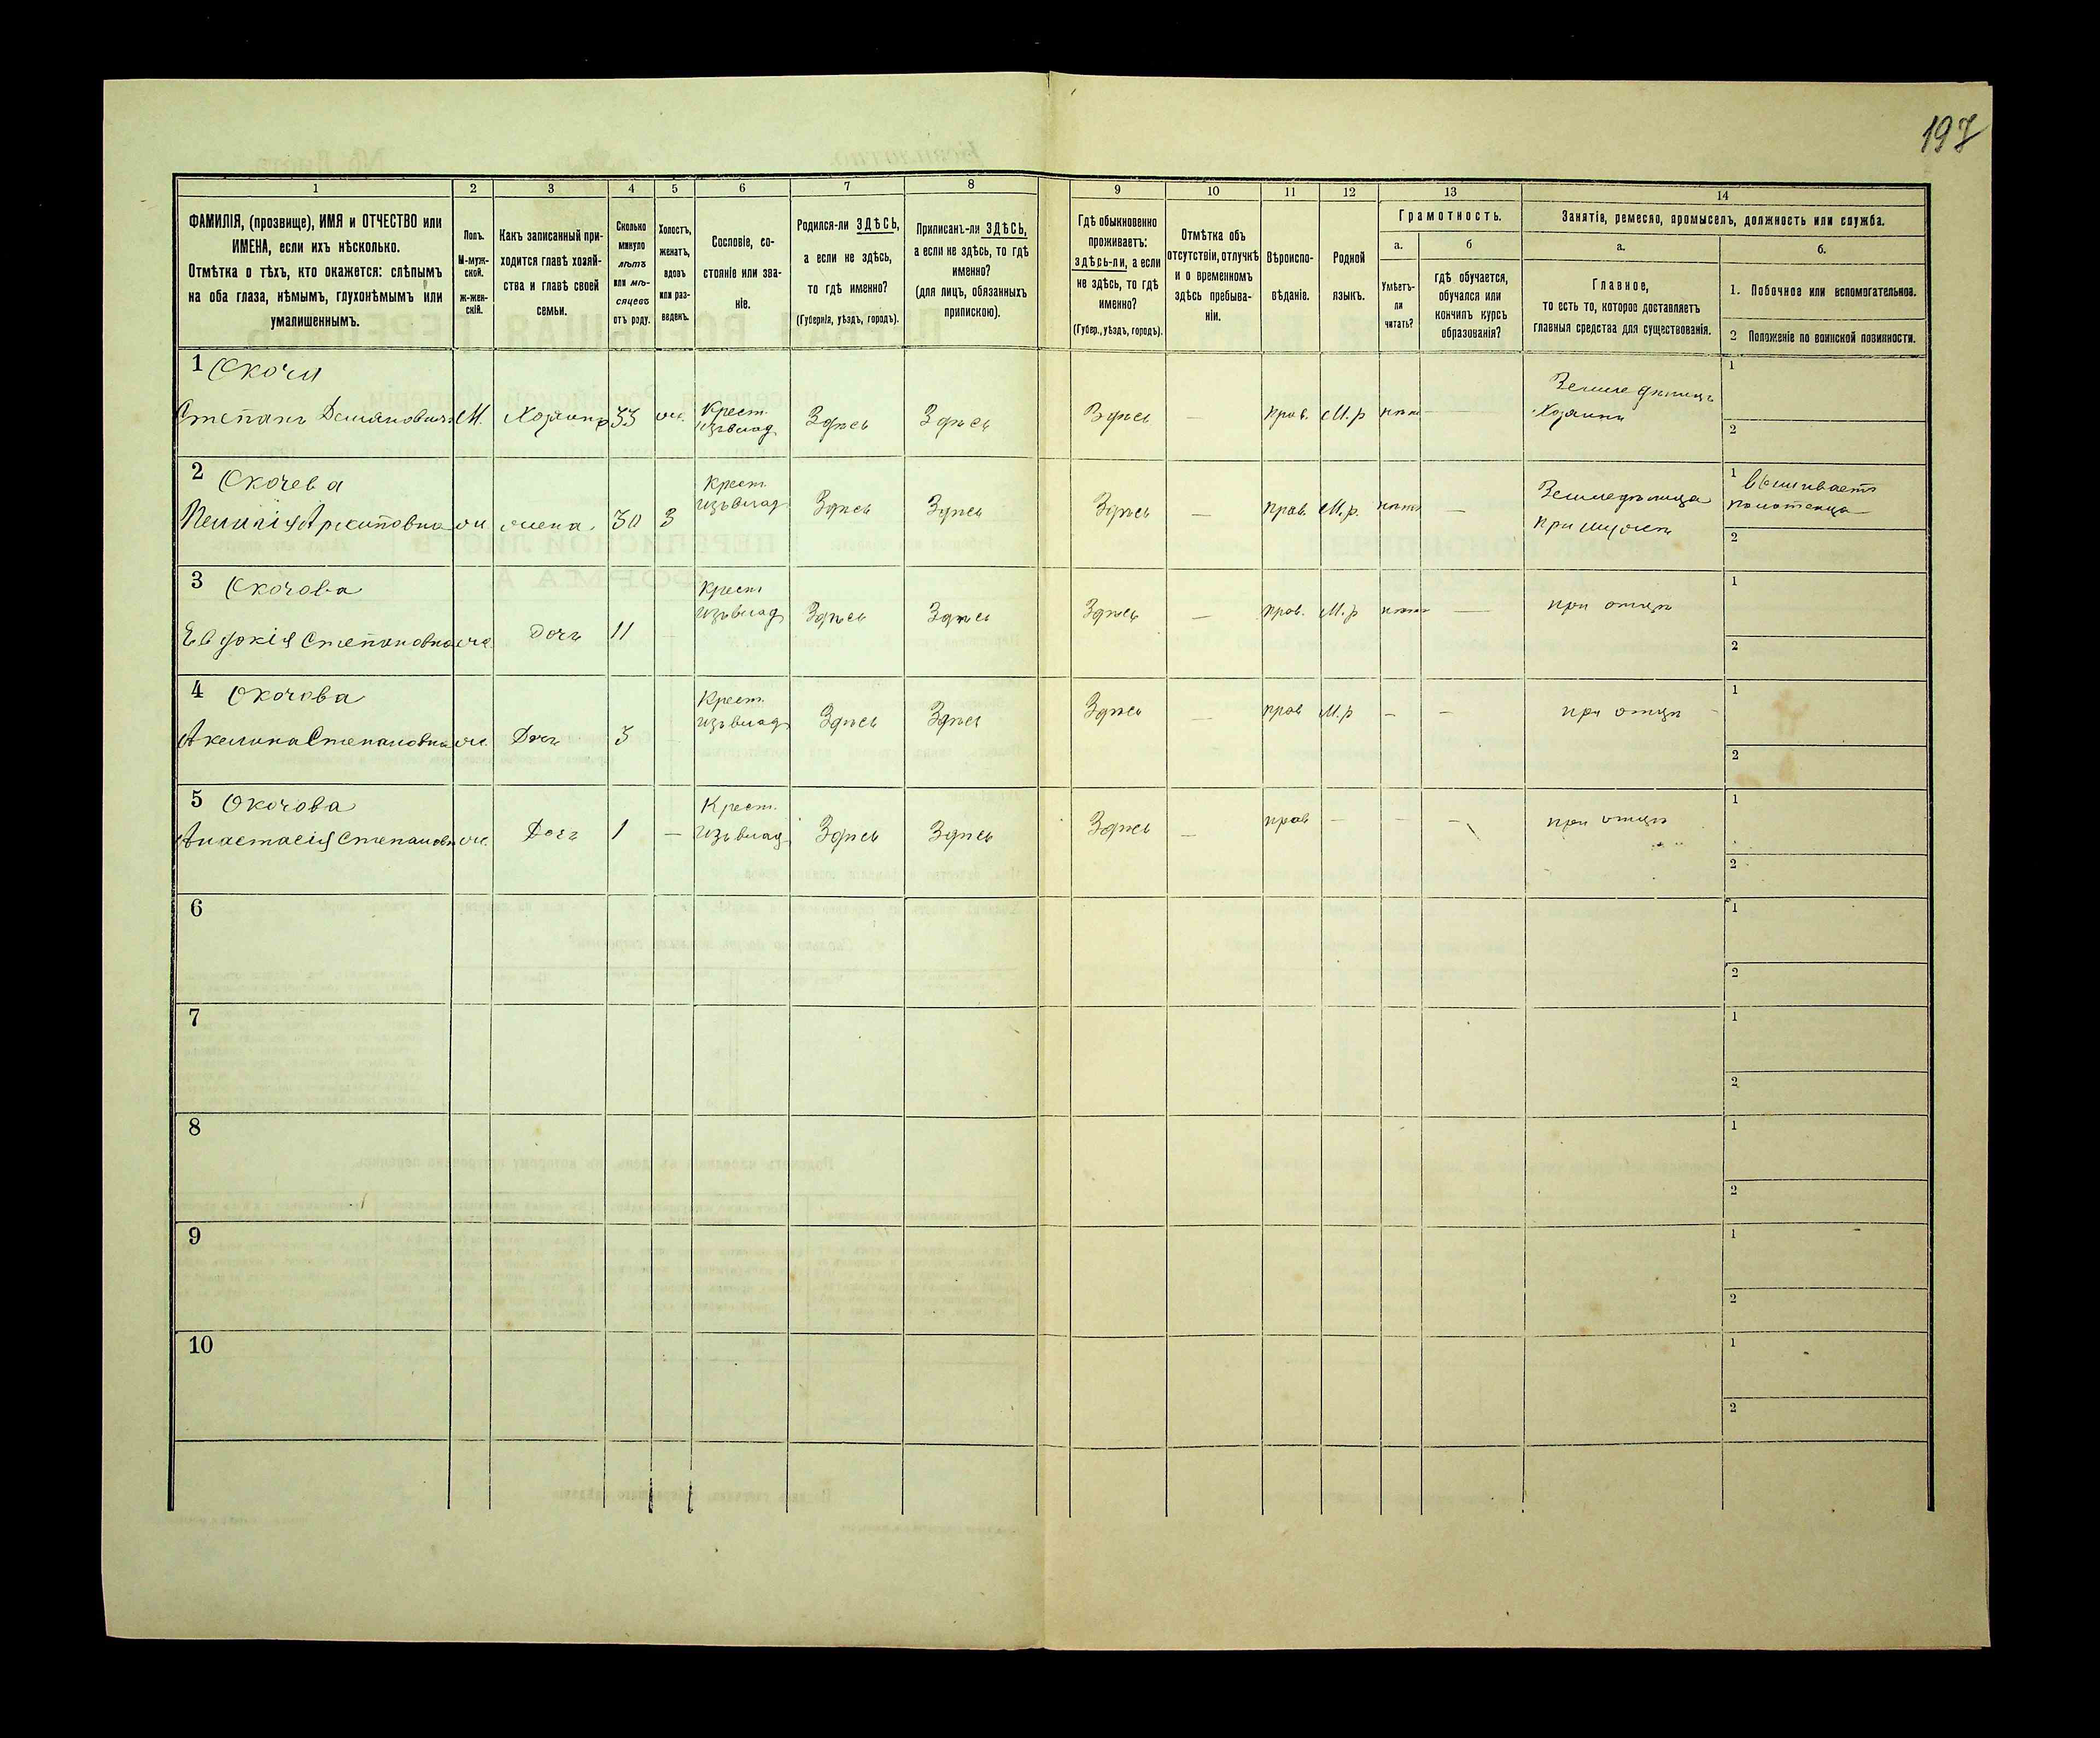 197
1 2 3 4 5 6 7 8 9 10 11 12 13 14
ФАМИЛІЯ, (прозвище), ИМЯ и ОТЧЕСТВО или
ИМЕНА, если ихъ нѣсколько.
Отмѣтка о тѣхъ, кто окажется: слѣпымъ
на оба глаза, нѣмымъ, глухонѣмымъ или
умалишеннымъ.
Полъ.
М-муж-
ской.
ж-жен-
скій.
Какъ записанный при-
ходится главѣ хозяй-
ства и главѣ своей
семьи.
Сколько
минуло
лѣтъ
или мѣ-
сяцевъ
отъ роду.
Холостъ,
женатъ,
вдовъ
или раз-
веденъ.
Сословіе, со-
стояніе или зва-
ніе.
Родился-ли ЗДѢСЬ,
а если не здѣсь,
то гдѣ именно?
(Губернія, уѣздъ, городъ).
Приписанъ-ли ЗДѢСЬ,
а если не здѣсь, то гдѣ
именно?
(для лицъ, обязанныхъ
припискою).
Гдѣ обыкновенно
проживаетъ:
здѣсь-ли, а если
не здѣсь, то гдѣ
именно?
(Губер., уѣздъ, городъ).
Отмѣтка объ
отсутствіи, отлучкѣ
и о временномъ
здѣсь пребыва-
ніи.
Вѣроиспо-
вѣданіе.
Родной
языкъ.
Грамотность.
а.
Умѣетъ-
ли
читать?
б
гдѣ обучается,
обучался или
кончилъ курсъ
образованія?
Занятія, ремесло, промыселъ, должность или служба.
а.
Главное,
то есть то, которое доставляетъ
главныя средства для существованія.
б.
1. Побочное или вспомогательное.
2 Положеніе по воинской повинности.
1 Скочи
Степанъ Демяновичъ М. Хозяинъ 33 ж. Крест. Здѣсь Здѣсь Здѣсь — прав. М.р нѣтъ —
изъ влад.
Хозяинъ
1
2
2 Скочева
Архиповна ж жена. 30 3 Крест. Здѣсь Здѣсь Здѣсь — прав. М.р. нѣтъ —
изъ влад
Земледѣлица
при мужѣ
1 вышиваетъ
полотенца
2
3 Скочова
Евдокія Степановна ж. Дочь 11 Крест Здѣсь Здѣсь Здѣсь — прав. М.р нѣтъ — при отцѣ
изъ влад
1
2
4 Скочова
Акелина Степановна ж. Дочь 3 Крест. Здѣсь Здѣсь Здѣсь — прав М.р — — при отцѣ
изъ влад
1
2
5 Скочова
Анастасія Степановн ж. Дочь 1 — Крест. Здѣсь Здѣсь Здѣсь — прав — — — при отцѣ
изъ влад
1
2
6
1
2
7
1
2
8
1
2
9
1
2
10
1
2